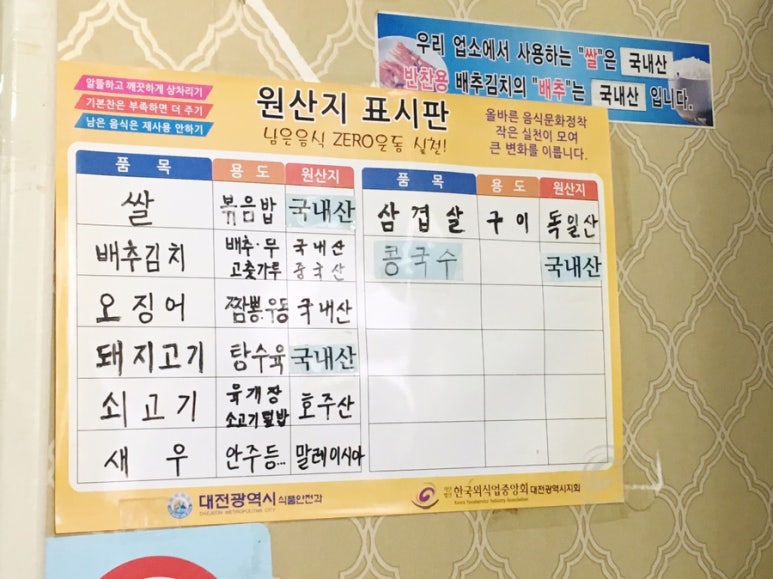 우리 업소에서 사용하는 "쌀"은 국내산
반찬용 배추김치의 "배추"는 국내산 입니다.
알뜰하고 깨끗하게 상차리기
기본찬은 부족하면 더 주기
남은 음식은 재사용 안하기
원산지 표시판
남은음식 ZERO운동 실천!
올바른 음식문화정착
작은 실천이 모여
큰 변화를 이룹니다.
품 목 용 도 원산지 품 목 용 도 원산지
쌀 볶음밥 국내산 삼겹살 구이 독일산
배추김치 배추·무 국내산 콩국수 국내산
고춧가루 중국산
오징어 짬뽕.우동 국내산
돼지고기 탕수육 국내산
쇠고기 육개장 호주산
소고기덮밥
새우 안주등... 말레이시아
대전광역시 식품안전과
DAEJEON METROPOLITAN CITY
한국외식업중앙회 대전광역시지회
Korea Foodservice Industry Association